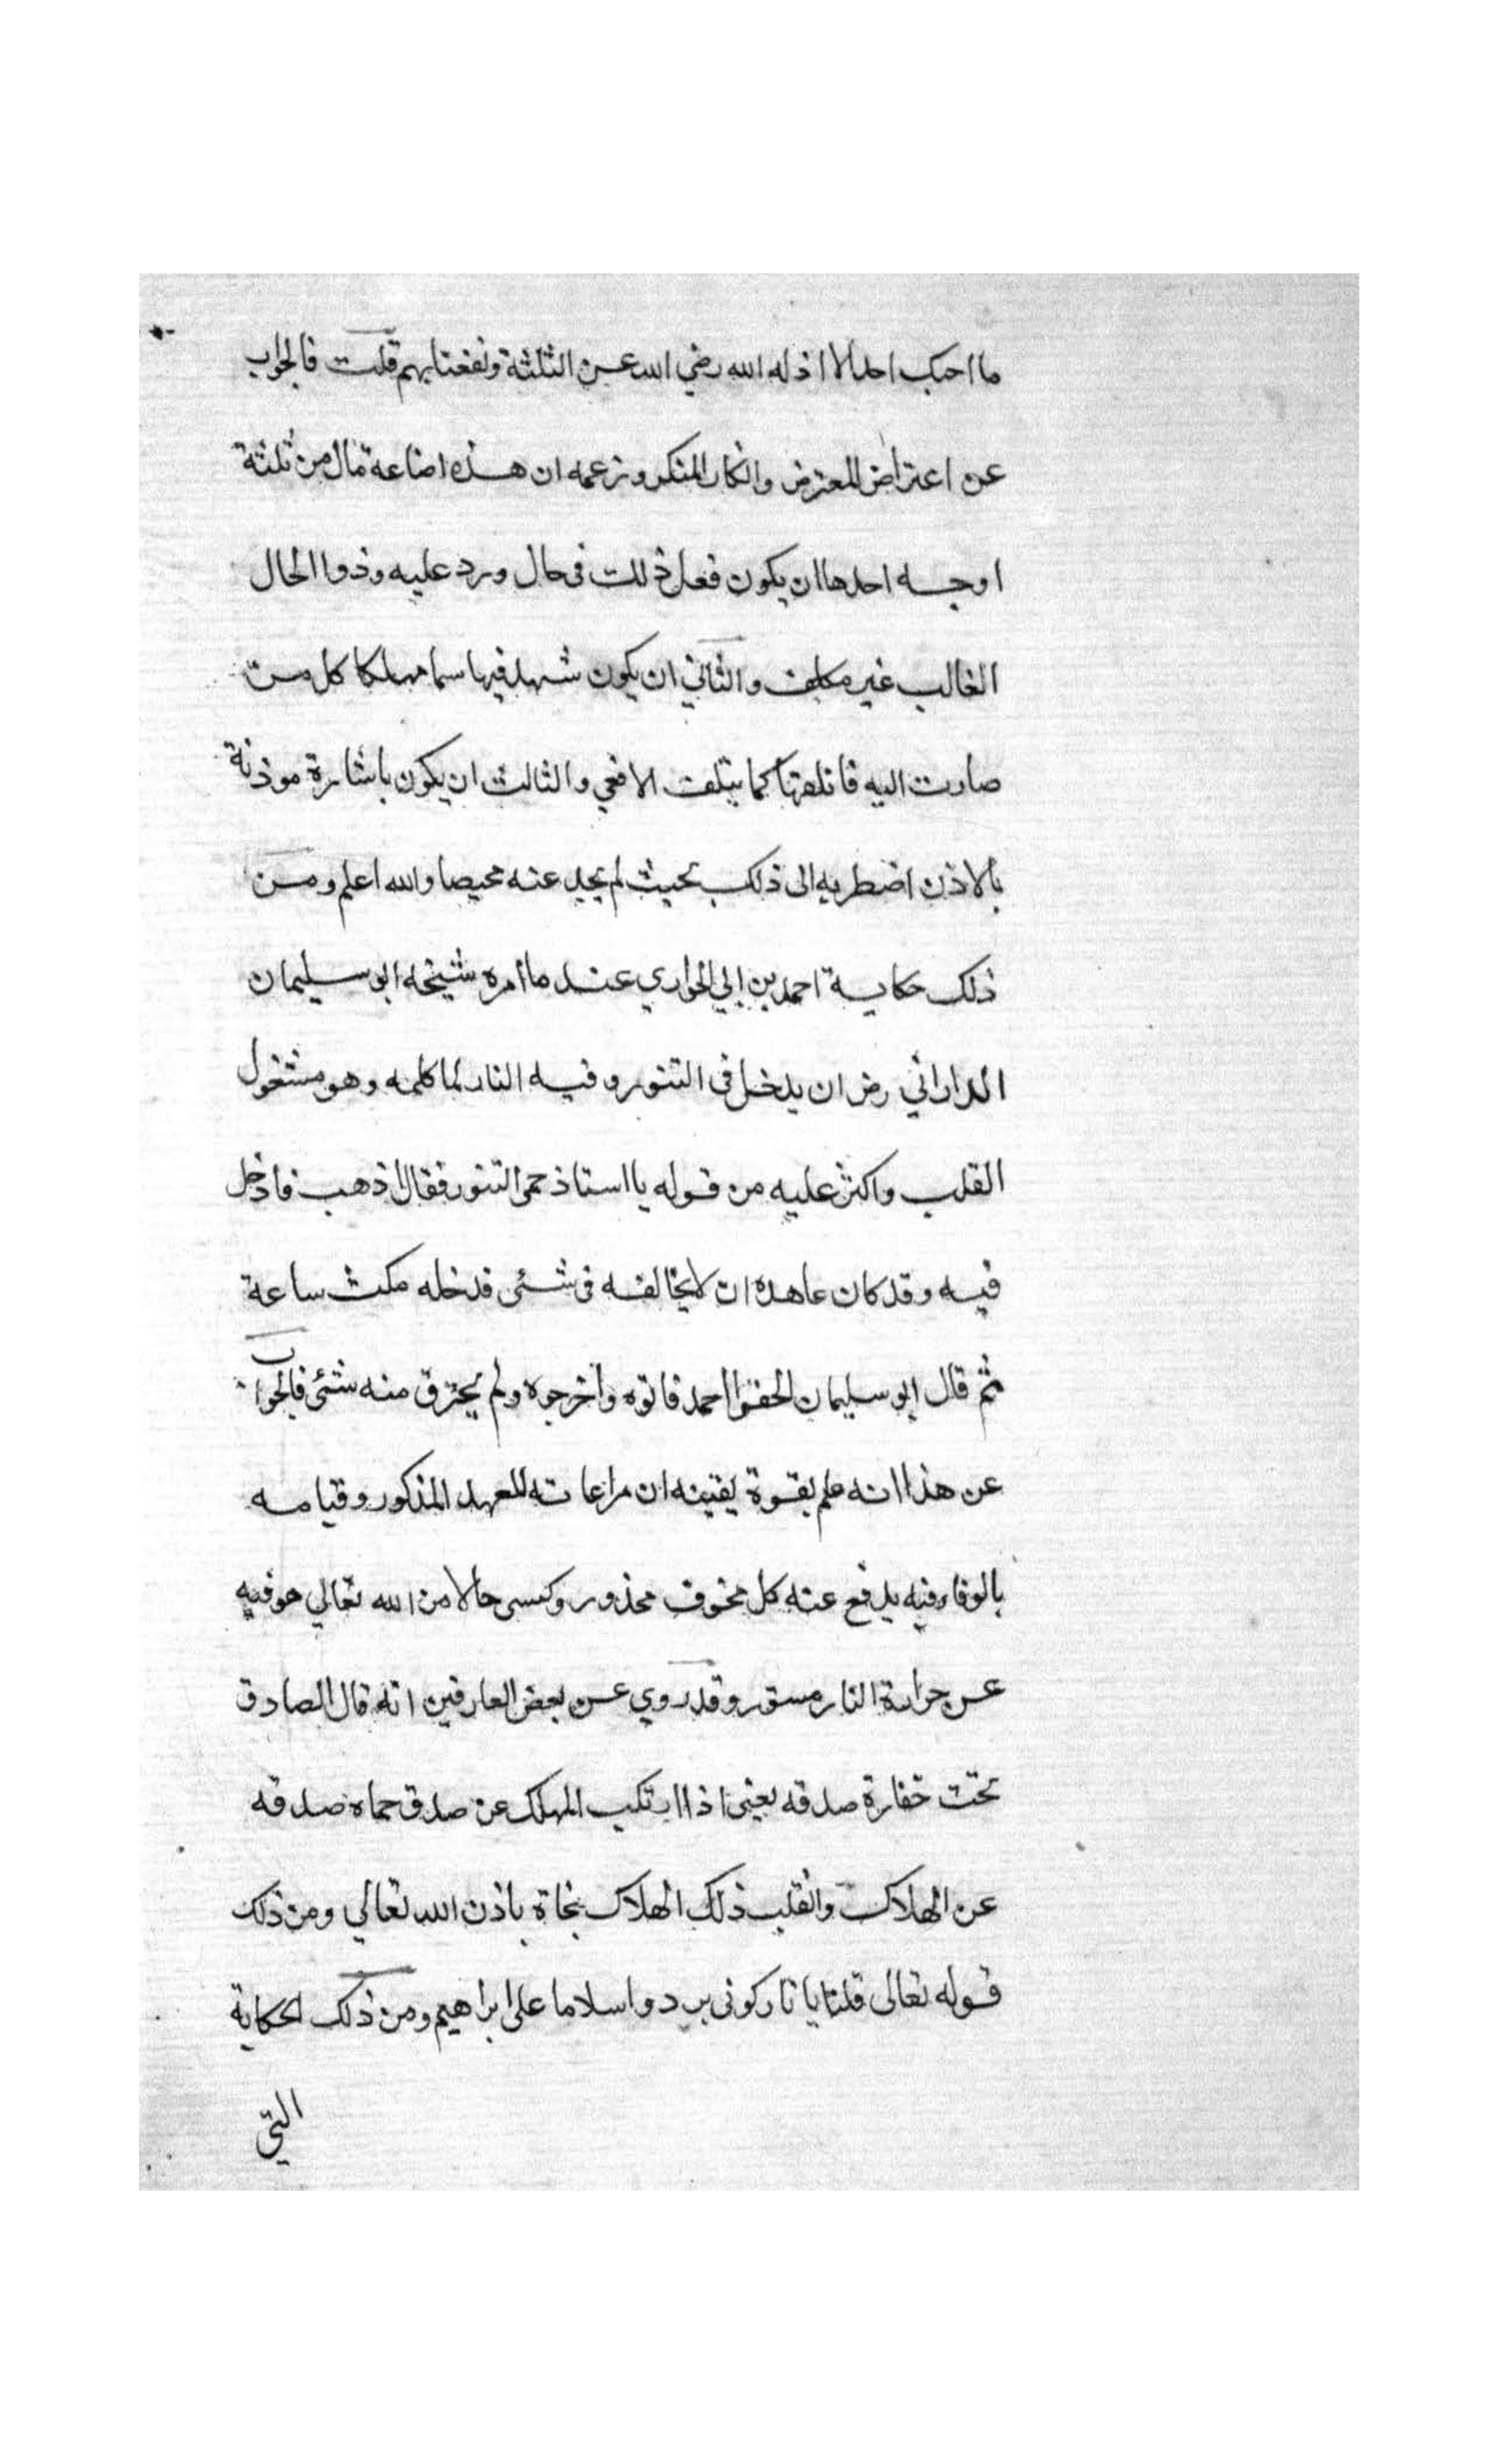 ما احبك احد الا اذله الله رضي الله عن الثلثة ونفعنا بهم قلت فالجواب
عن اعتراض المعترض وانكار المنكر وزعمه ان هذه اضاعة مال من ثلثة
اوجه احدها ان يكون فعل ذلك في حال ورد عليه وذوا الحال
الغالب غير مكلف والثاني ان يكون شهد فيها سما مهلكا كل من
صارت اليه فاتلفها كما يتلف الافعي والثالث ان يكون باشارة موذنة
بالاذن اضطر به الى ذلك بحيث لم يجد عنه محيصا والله اعلم ومن
ذلك حكاية احمد بن ابي الحواري عند ما امره شيخه ابو سليمان
الداراني رض ان يدخل في التنور وفيه النار لما كلمه وهو مشغول
القلب واكثر عليه من قوله يا استاذ حمى التنور فقال اذهب فادخل
فيه وقد كان عاهده ان لا يخالفه في شئى فدخله مكث ساعة
ثم قال ابو سليمان الحقوا احمد فاتوه واخرجوه ولم يحترق منه شئى فالجواب
عن هذا انه علم بقوة يقينه ان مراعاته للعهد المذكور وقيامه
بالوفاء فيه يدفع عنه كل مخوف محذور وكسى حالا من الله تعالي هو فيه
عن حرارة النار مستور وقد روي عن بعض العارفين انه قال الصادق
تحت خفارة صدقه يعني اذا ارتكب المهلك عن صدق حماه صدقه
عن الهلاك وانقلب ذلك الهلاك نجاة باذن الله تعالي ومن ذلك
قوله تعالى قلنا يا نار كونى بردوا سلاما على ابراهيم ومن ذلك الحكاية
التي